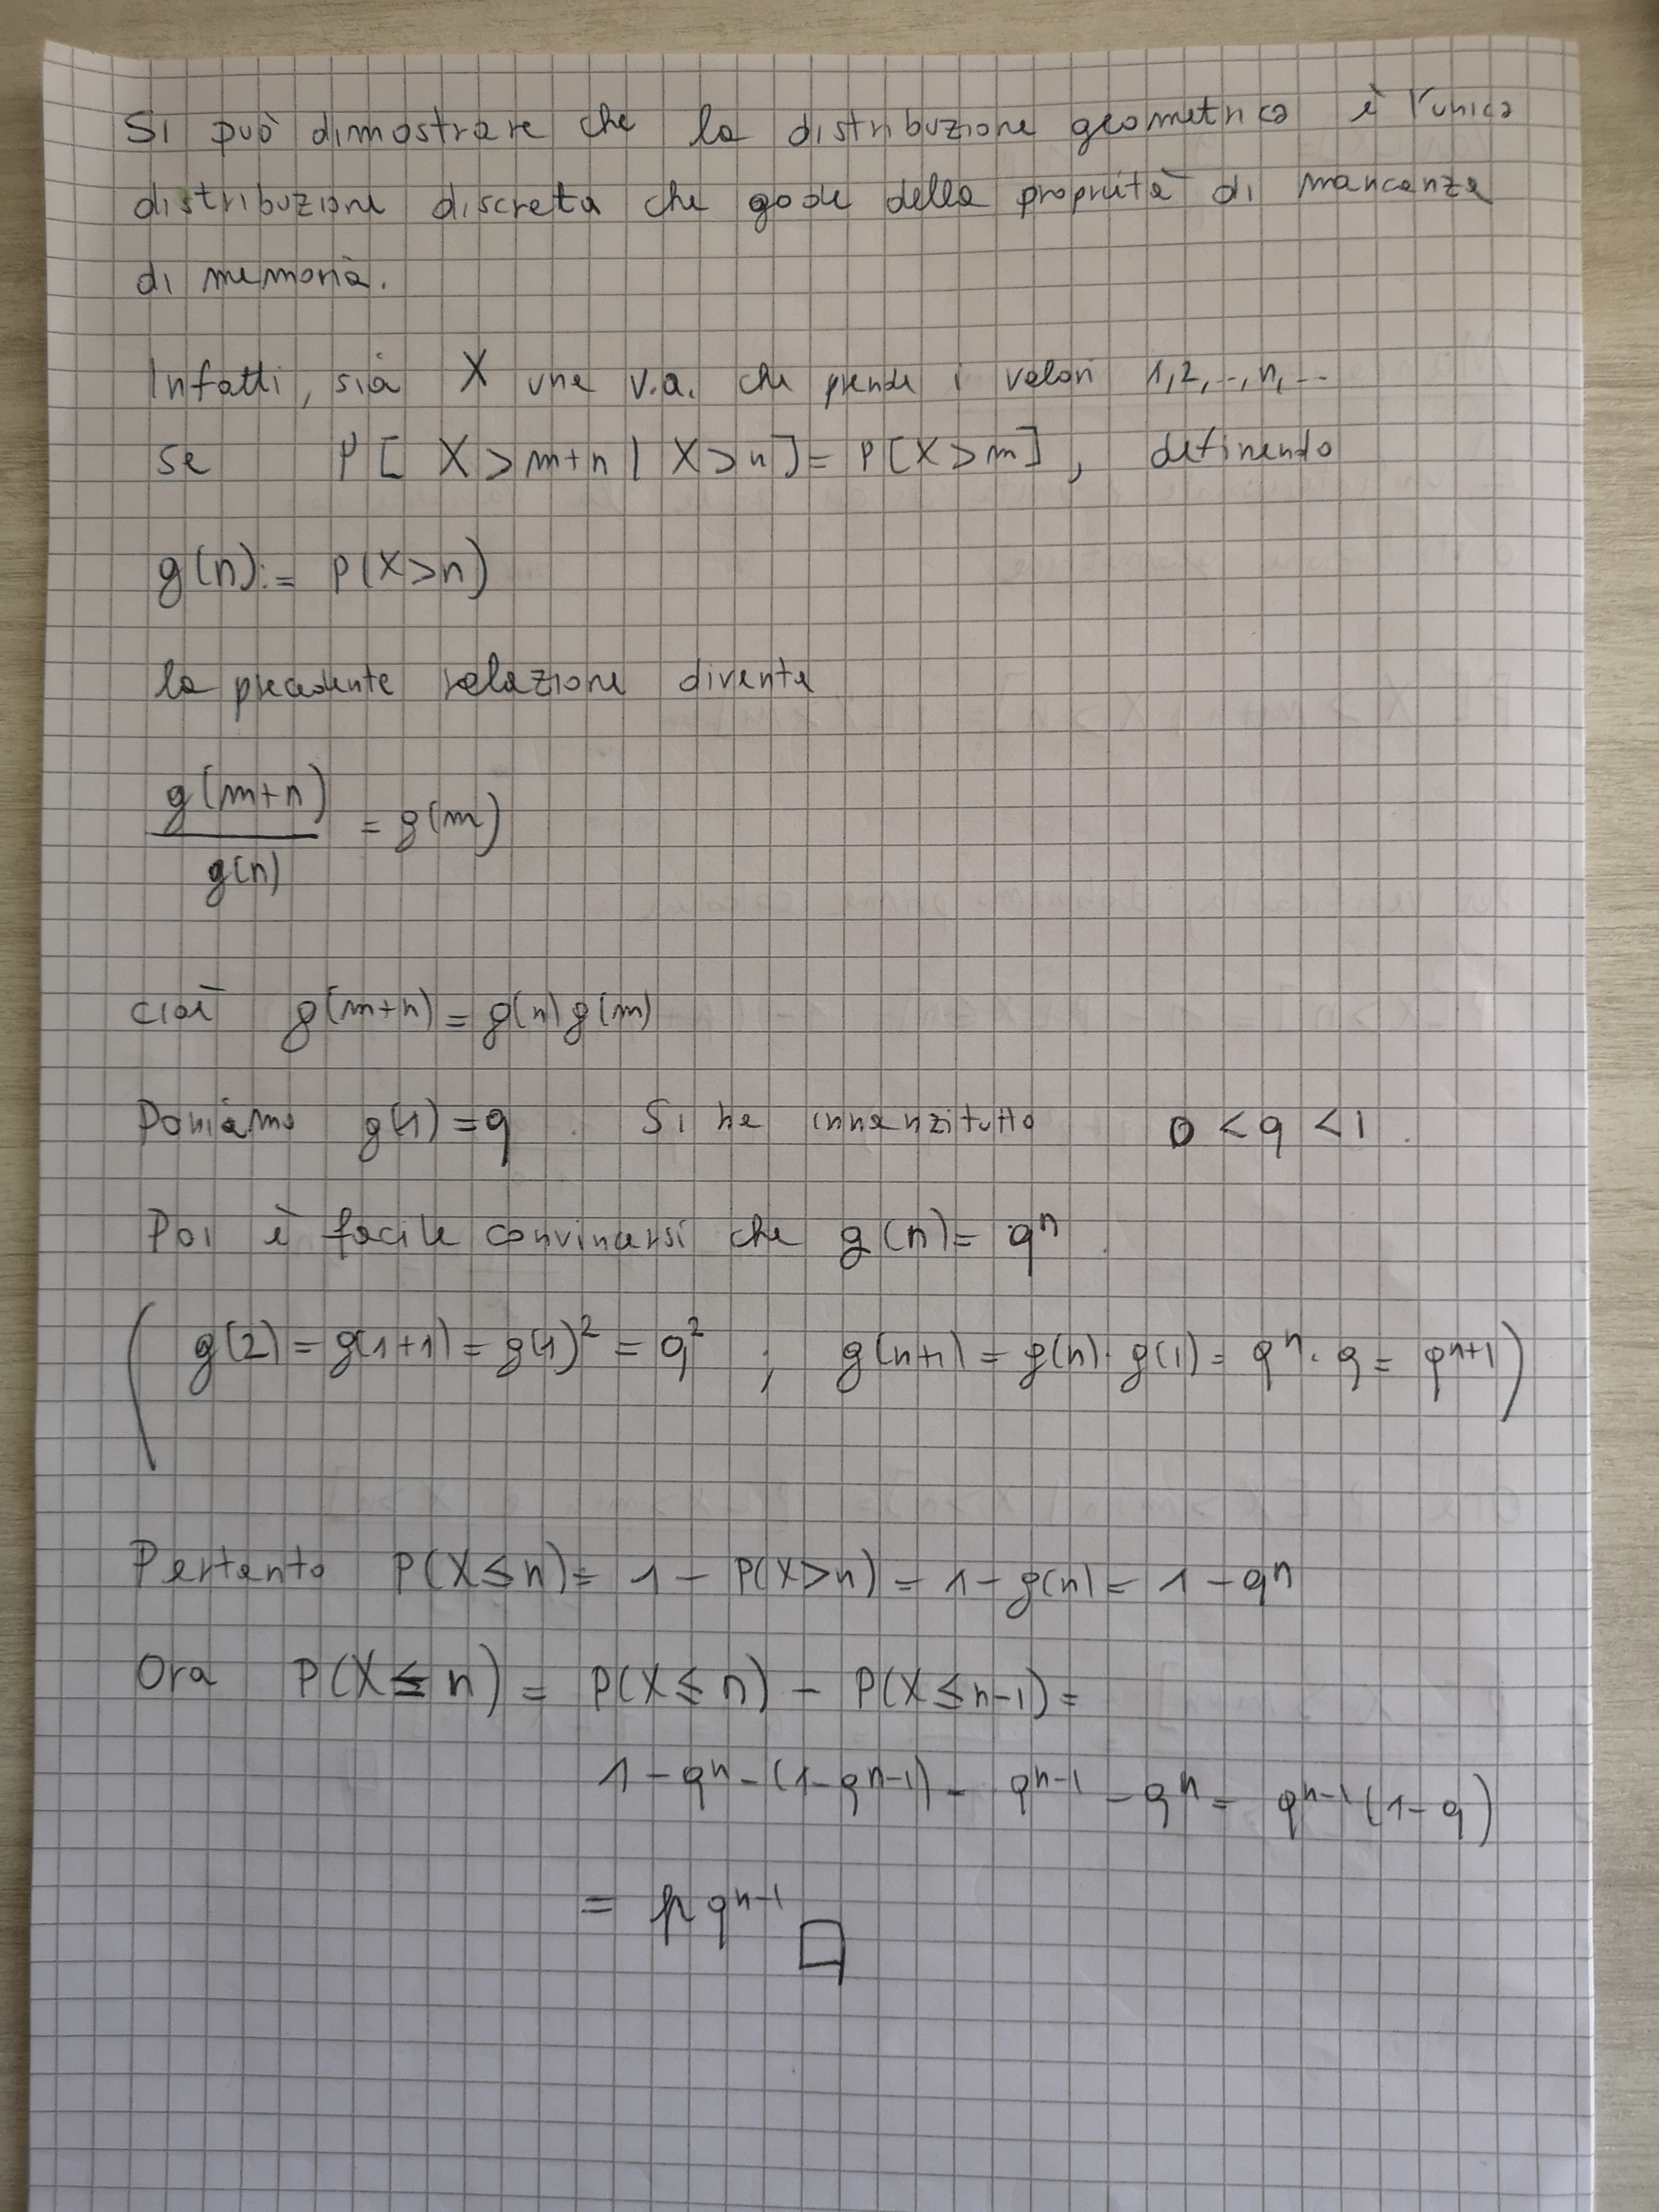 Si può dimostrare che la distribuzione geometrica è l'unica
distribuzione discreta che gode della proprietà di mancanza
di memoria.
Infatti, sia X una v.a. che prende i valori 1,2,..,n,...
se P[X>m+n | X>n] = P[X>m], definendo
g(n):= P(X>n)
la precedente relazione diventa
g(m+n)/g(n) = g(m)
cioè g(m+n) = g(n) g(m)
Poniamo g(1) = q. Si ha innanzitutto 0 < q < 1.
Poi è facile convincersi che g(n) = qⁿ.
(g(2) = g(1+1) = g(1)² = q² ; g(n+1) = g(n)·g(1) = qⁿ·q = qⁿ⁺¹)
Pertanto P(X≤n) = 1 - P(X>n) = 1 - g(n) = 1 - qⁿ
Ora P(X≤n) = P(X≤n) - P(X≤n-1) =
1 - qⁿ - (1-qⁿ⁻¹) = qⁿ⁻¹ - qⁿ = qⁿ⁻¹(1-q)
= pqⁿ⁻¹ □